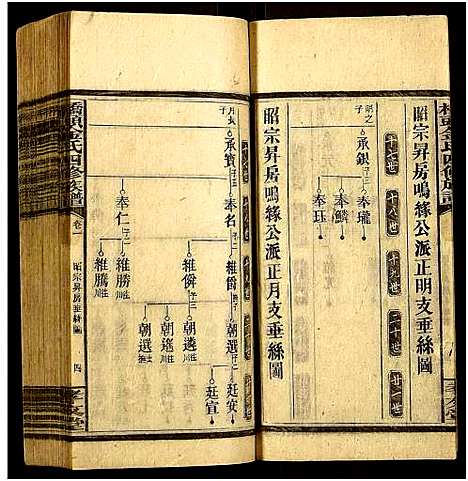 昭宗昇房鳴緣公派正明支垂絲圖
十七世 十八世 十九世 二十世 廿一世
明之子 承銀
奉瓏
奉鱗
奉珏
昭宗昇房鳴緣公派正月支垂絲圖
月之子 承寶
奉名
奉仁
維爵
維僑
維勝
維騰
朝選
朝遴
朝遙
朝選
廷安
廷宣
橋頭金氏四修族譜
卷一
昭宗昇房垂絲圖
四